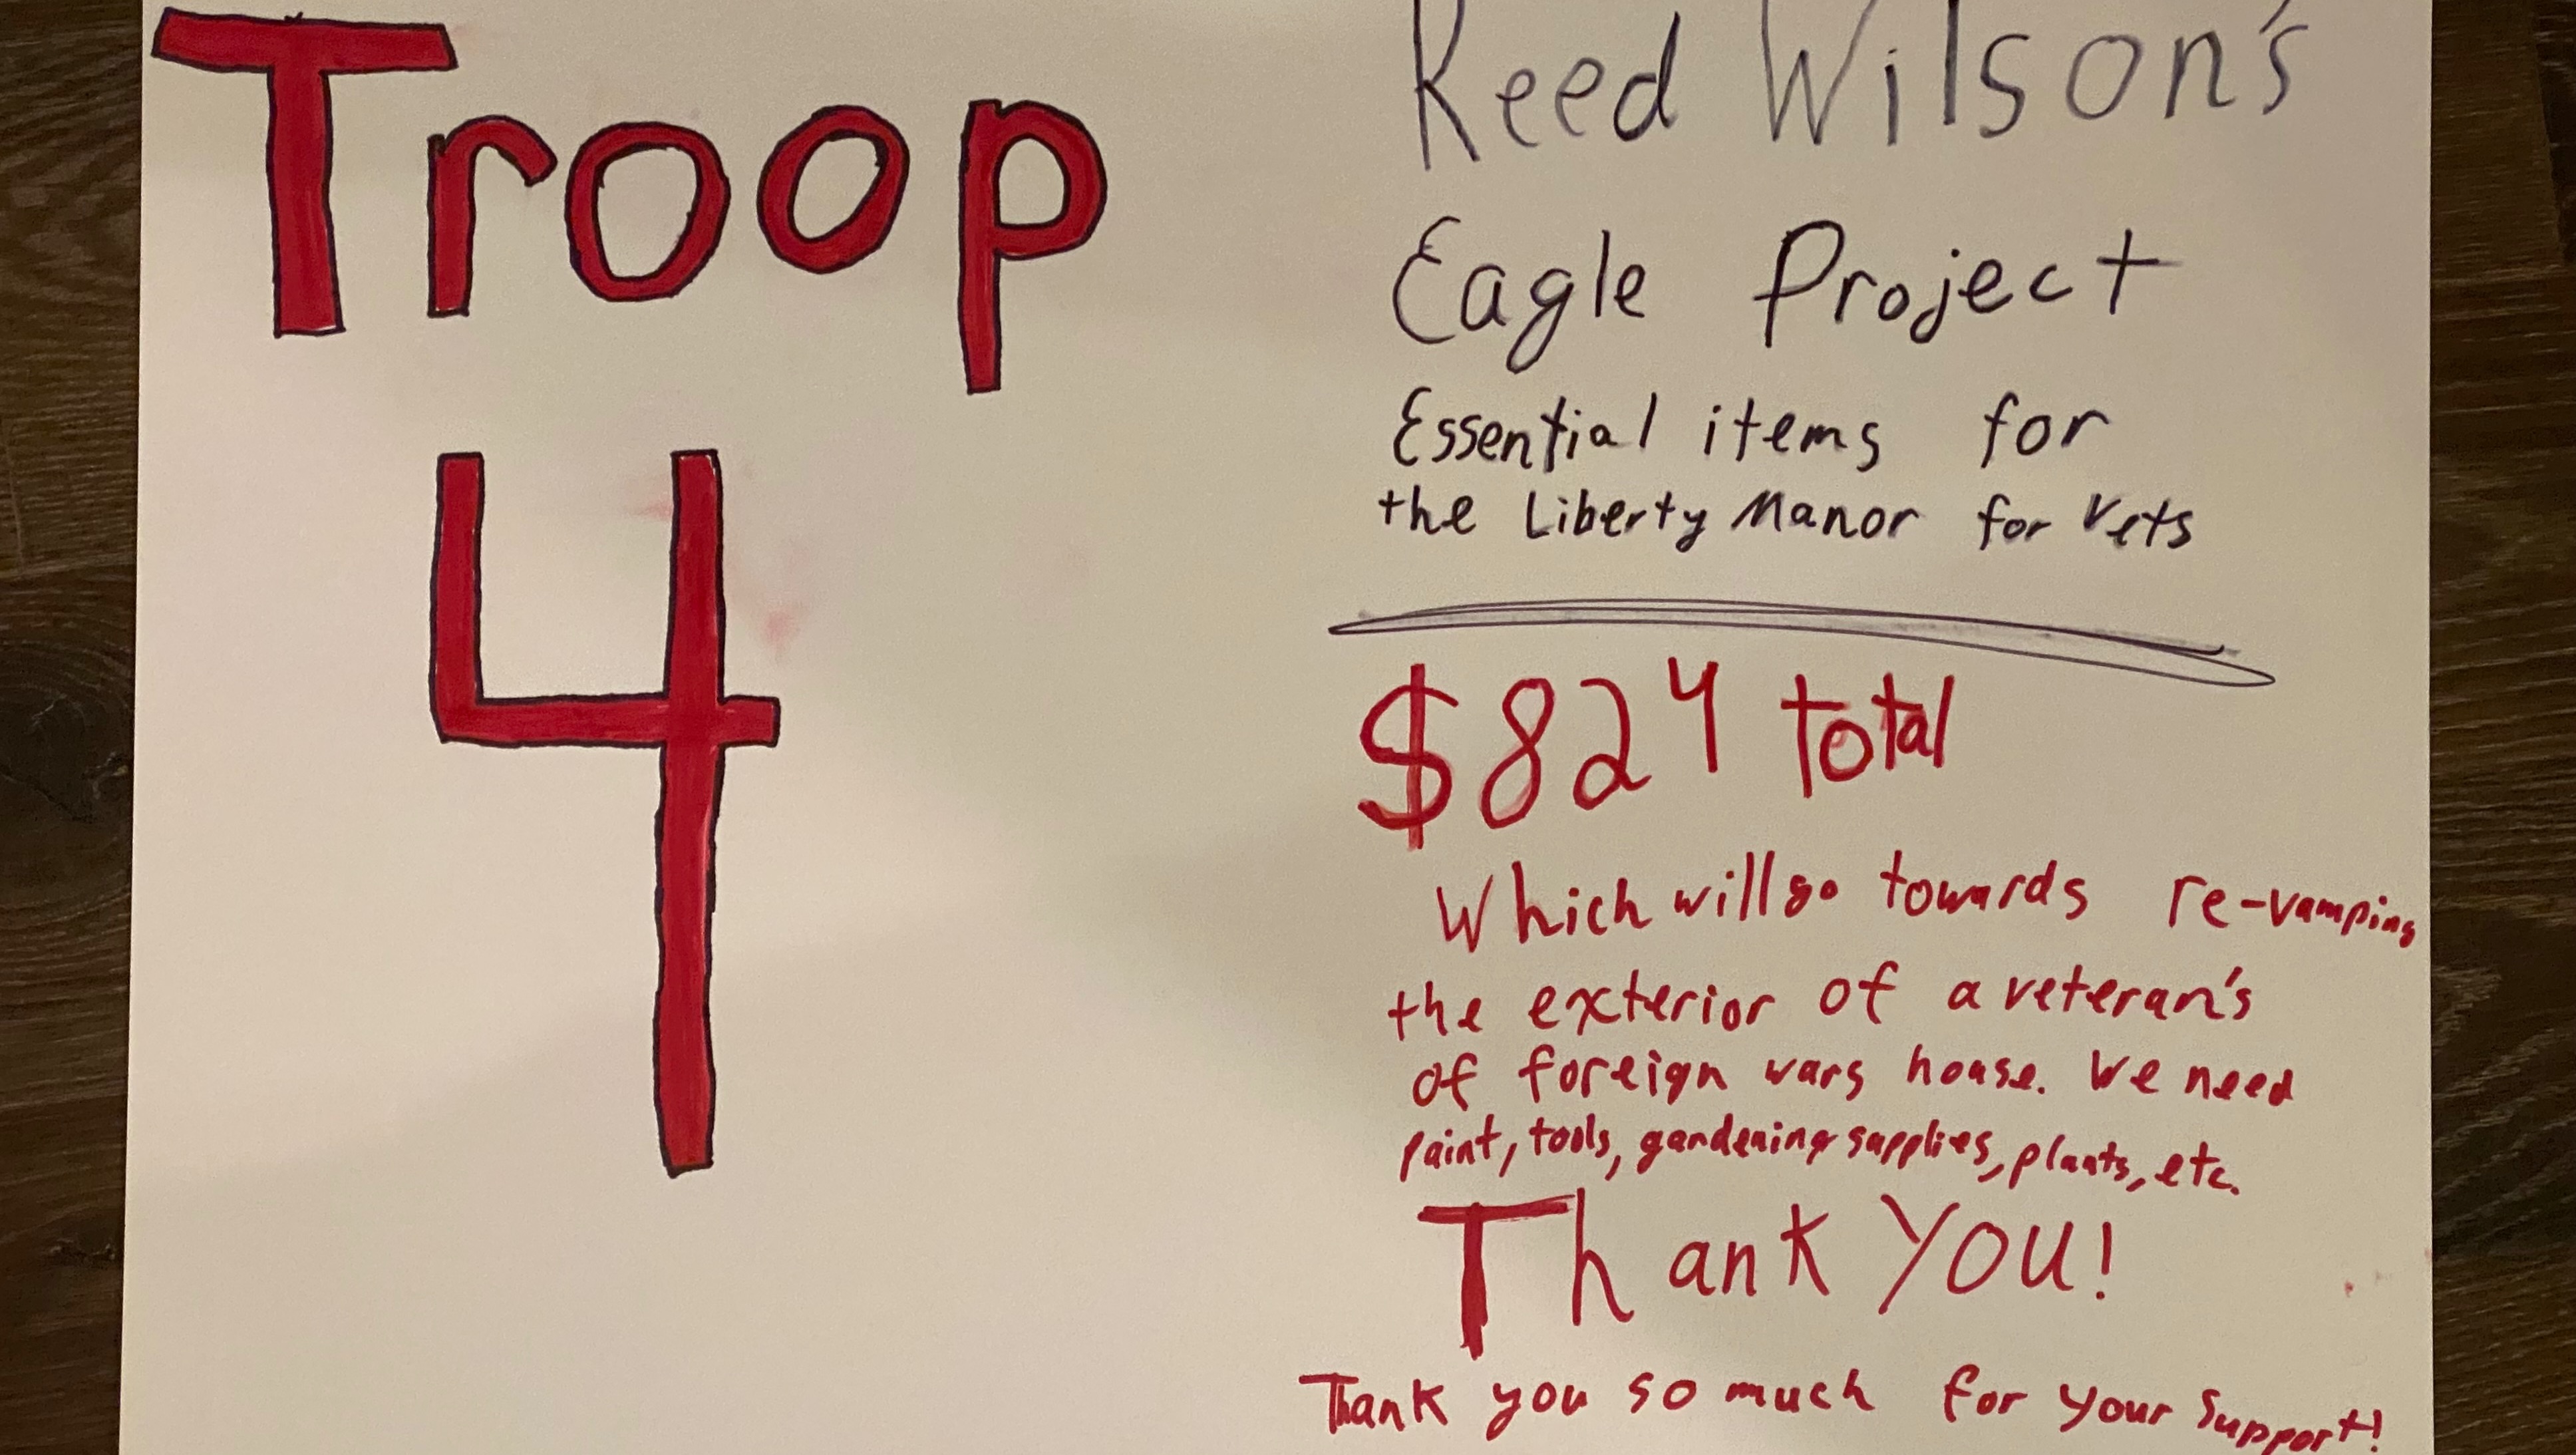 Troop
4
Reed Wilson's
Eagle Project
Essential items for
the Liberty Manor for Vets
$824 total
Which will go towards re-vamping
the exterior of a veteran's
of foreign wars house. We need
paint, tools, gardening supplies, plants, etc.
Thank YOU!
Thank you so much for your support!